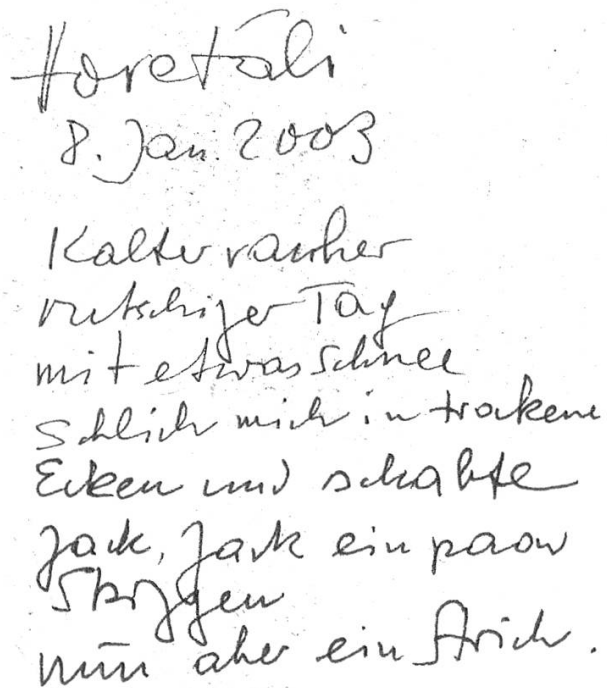 Horetäli
8. Jan. 2003
Kalter rauher
rutschiger Tag
mit etwas Schnee
Schlich mich in trockene
Ecken und schabte
zack, zack ein paar
Skizzen
nun aber ein Strich.